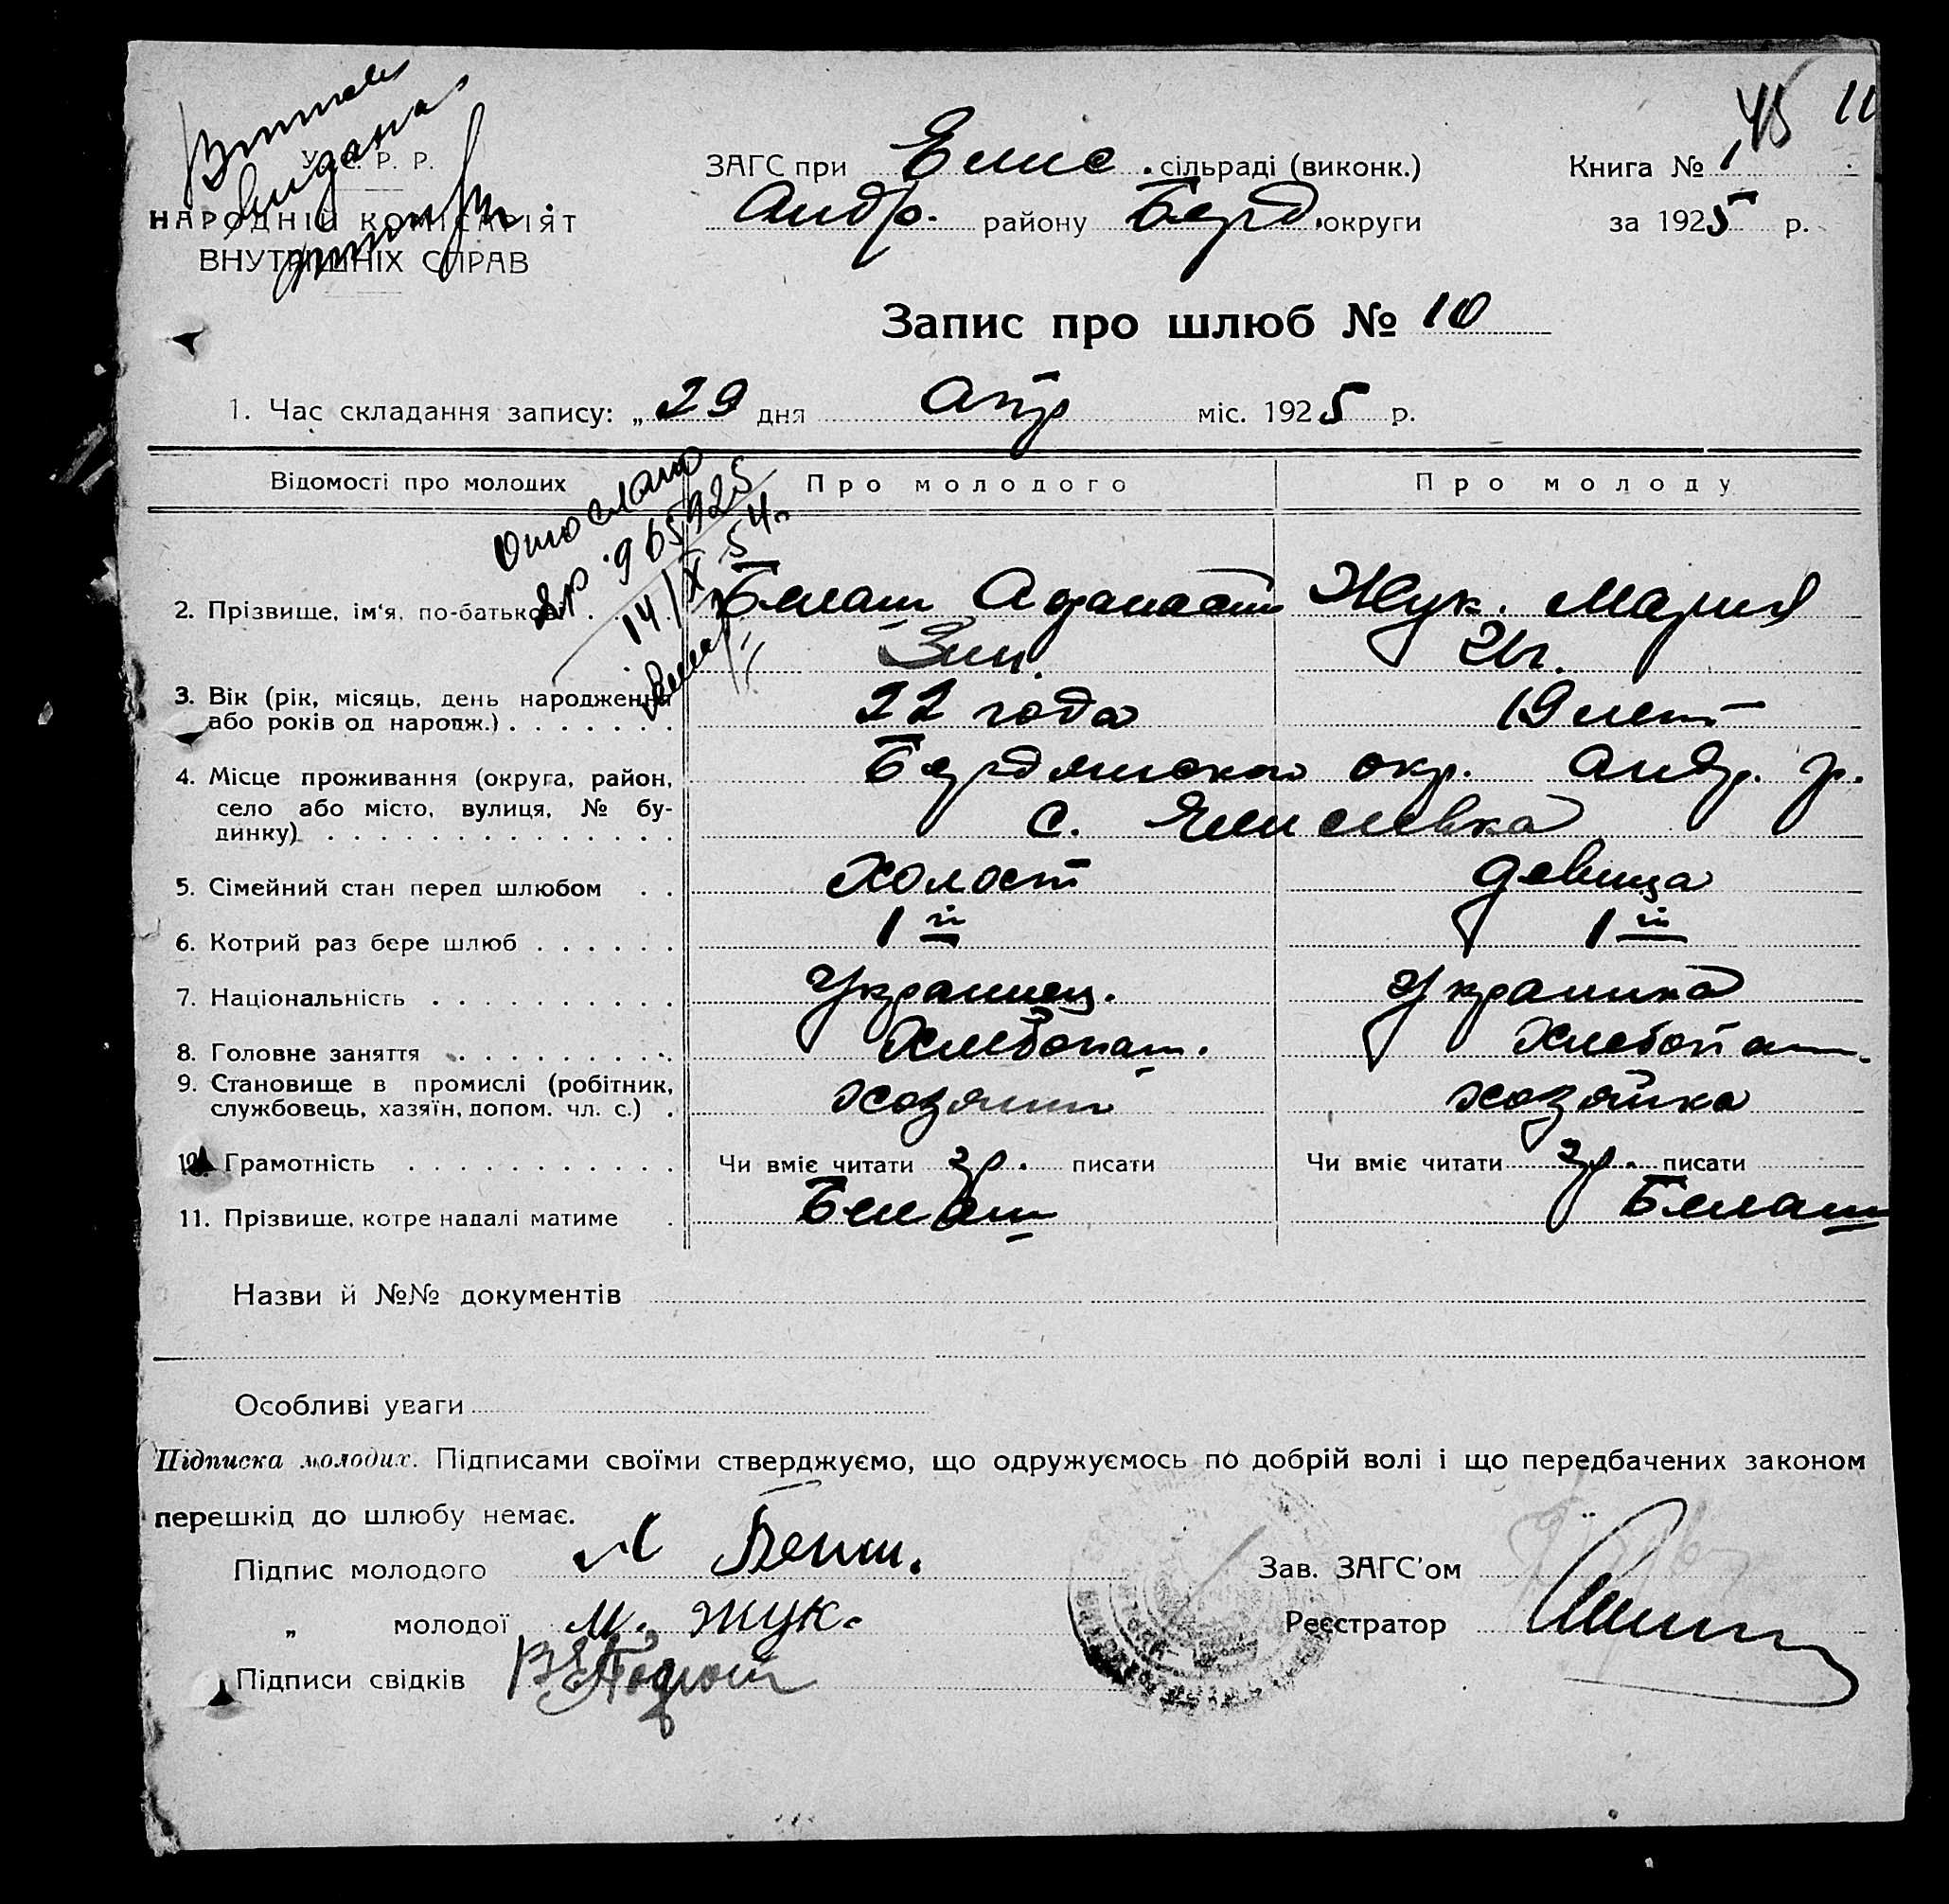 45 11
Выписка
выдана
У. С. Р. Р.
НАРОДНІЙ КОМІСАРІЯТ
ВНУТРІШНІХ СПРАВ
ЗАГС при Елис. сільраді (виконк.)
Андр. району Берд. округи
Книга № 1
за 1925 р.
Запис про шлюб № 10
1. Час складання запису: „ 29 дня Апр міс. 1925 р.
Відомості про молодих Про молодого Про молоду
отослано
965925
14/X 54
2. Прізвище, ім'я, по-батькові . . Белаш Афанасий Жук. Мария
Зин. Иг.
3. Вік (рік, місяць, день народження 22 года 19 лет
або років од народж.) . . . . . . .
4. Місце проживання (округа, район, Бердянского окр. Андр. р.
село або місто, вулиця, № бу-
динку) . . . . . . . . . . . . . . с. Елисеевка
5. Сімейний стан перед шлюбом . . Холост девица
6. Котрий раз бере шлюб . . . . . . 1й 1й
7. Національність . . . . . . . . . . Украинец. Украинка
8. Головне заняття . . . . . . . . . Хлебопаш. Хлебопаш.
9. Становище в промислі (робітник,
службовець, хазяїн, допом. чл. с.) . хозяин хозяйка
10. Грамотність . . . . . . . . . . . Чи вміє читати гр. писати Чи вміє читати гр. писати
11. Прізвище, котре надалі матиме . Белаш Белаш
Назви й №№ документів
Особливі уваги
Підписка молодих. Підписами своїми стверджуємо, що одружуємось по добрій волі і що передбачених законом
перешкід до шлюбу немає.
Підпис молодого А Белаш.
Зав. ЗАГС'ом
„ молодої М. Жук.
Реєстратор
Підписи свідків